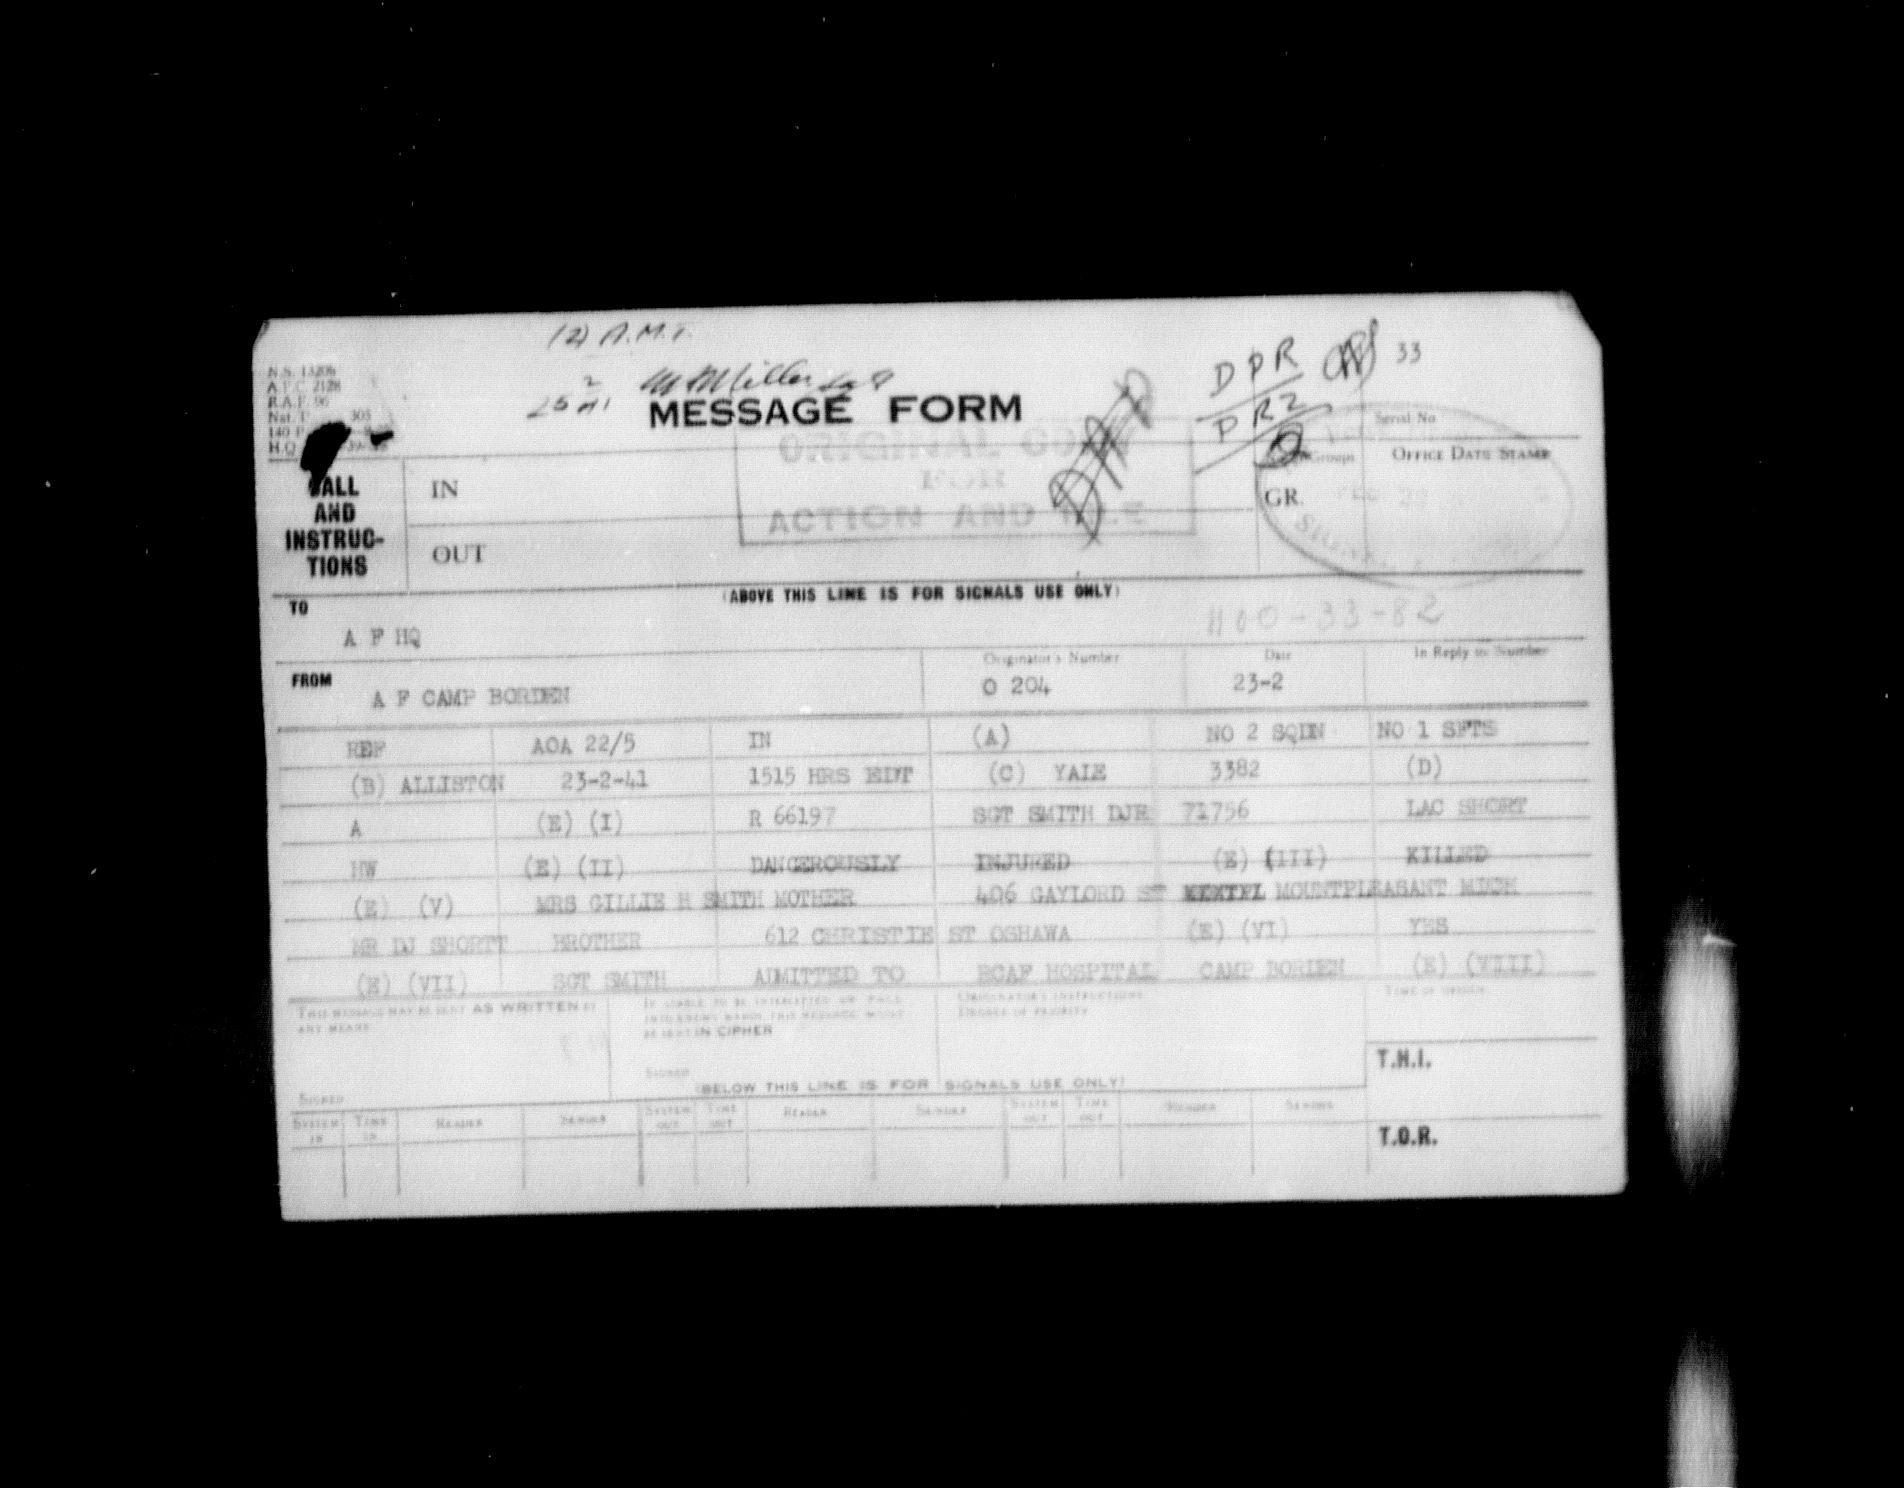 (2) A.M.T.
DPR 33
N.S. 13206
A.F.C. 2128
R.A.F. 96
MESSAGE FORM
PR2
Serial No
ORIGINAL COPY
FOR
ACTION AND FILE
Groups
OFFICE DATE STAMP
CALL AND INSTRUC-TIONS
IN
GR.
OUT
SIGNALS
(ABOVE THIS LINE IS FOR SIGNALS USE ONLY)
TO
A F HQ
1100-33-82
Originator's Number
Date
In Reply to Number
FROM
A F CAMP BORDEN
O 204
23-2
REF AOA 22/5 IN (A) NO 2 SQDN NO 1 SFTS
(B) ALLISTON 23-2-41 1515 HRS EDT (C) YALE 3382 (D)
A (E) (I) R 66197 SGT SMITH DJR 71756 LAC SHORT
HW (E) (II) DANGEROUSLY INJURED (E) (III) KILLED
(E) (V) MRS GILLIE H SMITH MOTHER 406 GAYLORD ST MOUNTPLEASANT MICH
MR DJ SHORTT BROTHER 612 CHRISTIE ST OSHAWA (E) (VI) YES
(E) (VII) SGT SMITH ADMITTED TO RCAF HOSPITAL CAMP BORDEN (E) (VIII)
THIS MESSAGE MAY BE SENT AS WRITTEN BY
ANY MEANS
IF LIABLE TO BE INTERCEPTED OR FALL
INTO ENEMY HANDS THIS MESSAGE MUST
BE SENT IN CIPHER
ORIGINATOR'S INSTRUCTIONS
DEGREE OF PRIORITY
TIME OF ORIGIN
T.H.I.
SIGNED
SIGNED
(BELOW THIS LINE IS FOR SIGNALS USE ONLY)
SYSTEM IN TIME IN READER SENDER SYSTEM OUT TIME OUT READER SENDER SYSTEM OUT TIME OUT READER SENDER
T.O.R.